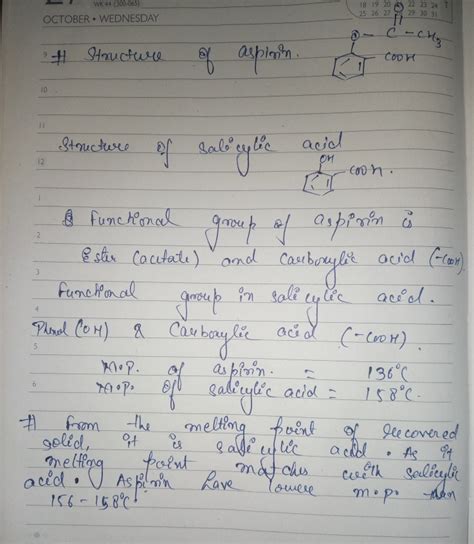 WK 44 (300-065)
OCTOBER • WEDNESDAY
18 19 20 21 22 23 24
25 26 27 28 29 30 31
# Structure of aspirin.
O
O - C - CH3
COOH
Structure of salicylic acid
OH
COOH.
Functional group of aspirin is
Ester (acetate) and Carboxylic acid (-COOH)
Functional group in salicylic acid.
Phenol (OH) & Carboxylic acid (-COOH).
M.P. of aspirin. = 136°C
M.P. of salicylic acid = 158°C.
# From the melting point of recovered
solid, it is salicylic acid. As it
melting point matches with salicylic
acid. Aspirin have lower m.p. than
156-158°C